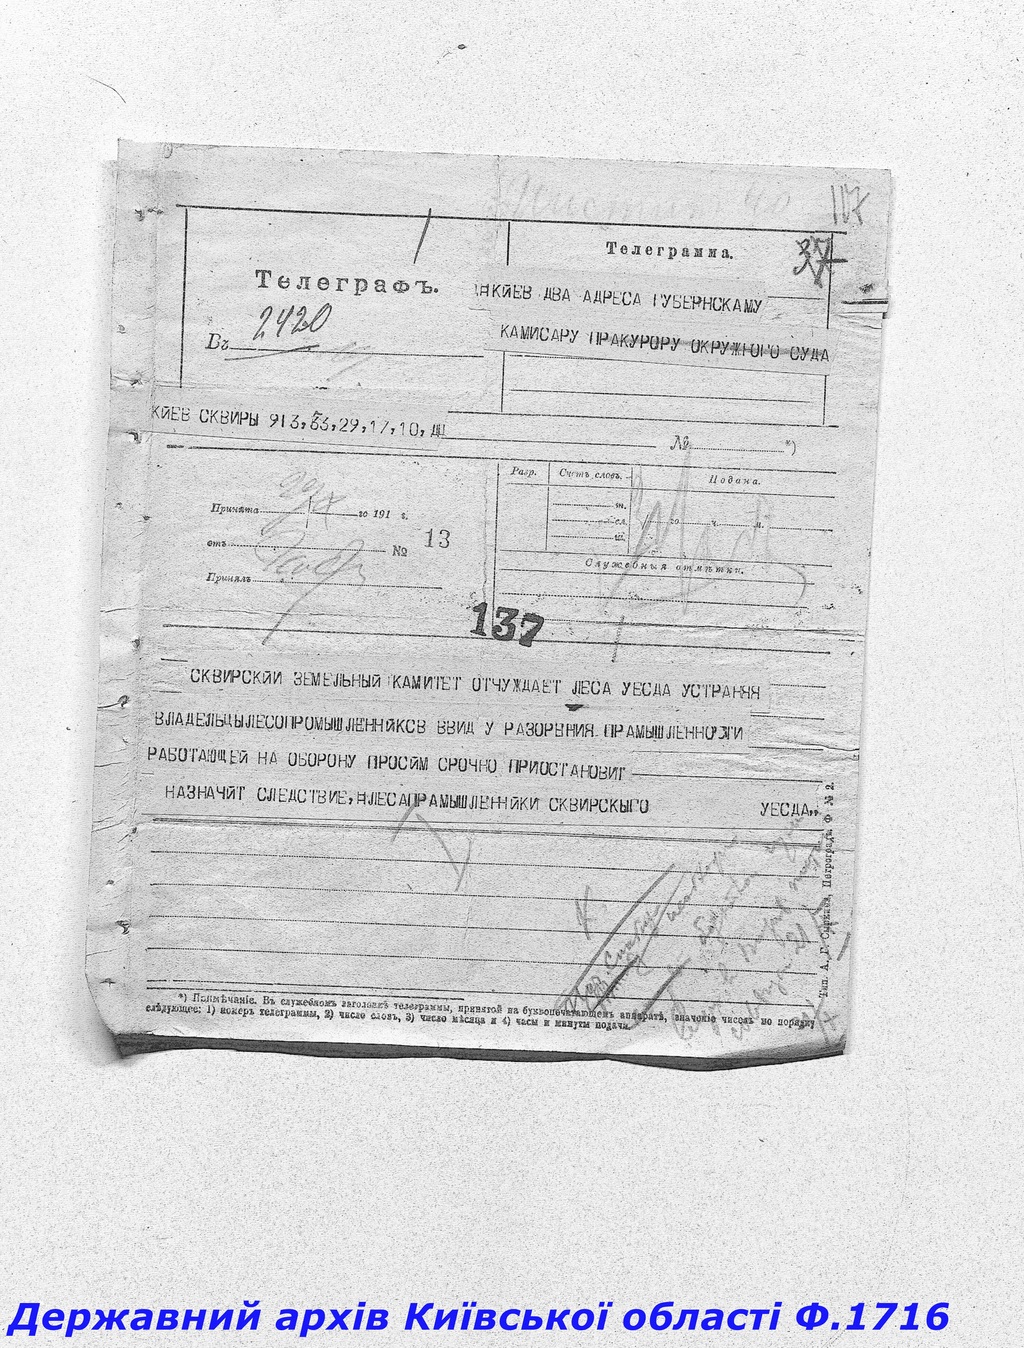 117
Телеграмма.
37
Телеграфъ.
КИЕВ ДВА АДРЕСА ГУБЕРНСКАМУ
2420
КАМИСАРУ ПРАКУРОРУ ОКРУЖНОГО СУДА
Въ
КИЕВ СКВИРЫ 913,53,29,17,10,ДЦ
№ *)
Разр. Счетъ словъ. Подана.
Принята го 191 г.
т. го ч. м.
сл.
отъ № 13
ш.
Служебныя отмѣтки.
Принялъ
137
СКВИРСКИЙ ЗЕМЕЛЬНЫЙ КАМИТЕТ ОТЧУЖДАЕТ ЛЕСА УЕСДА УСТРАНЯЯ
ВЛАДЕЛЬЦЫЛЕСОПРОМЫШЛЕННИКСВ ВВИД У РАЗОРЕНИЯ ПРАМЫШЛЕННОЗТИ
РАБОТАЮЩЕЙ НА ОБОРОНУ ПРОСИМ СРОЧНО ПРИОСТАНОВИТ
НАЗНАЧИТ СЛЕДСТВИЕ,НЛЕСАПРАМЫШЛЕННИКИ СКВИРСКЫГО УЕСДА,,
Тип. А. Г. Сыркина, Петроградъ. Ф № 2.
*) Примѣчаніе. Въ служебномъ заголовкѣ телеграммы, принятой на буквопечатающемъ аппаратѣ, значеніе чиселъ по порядку
слѣдующее: 1) номеръ телеграммы, 2) число словъ, 3) число мѣсяца и 4) часы и минуты подачи.
Державний архів Київської області Ф.1716